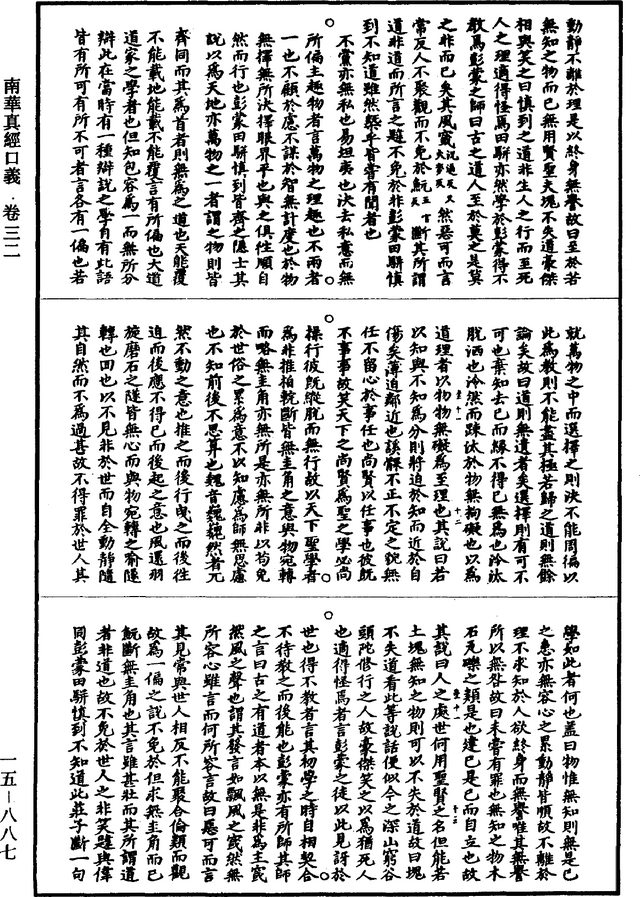 動靜不離於理是以終身無譽故曰至於若
無知之物而已無用賢聖夫塊不失道豪傑
相與笑之曰慎到之道非生人之行而至死
人之理適得怪焉田駢亦然學於彭蒙得不
教焉彭蒙之師曰古之道人至於莫之是莫
之非而已矣其風窢然惡可而言
常反人不聚觀而不免於魭斷其所謂
道非道而所言之韙不免於非彭蒙田駢慎
到不知道雖然槩乎皆嘗有聞者也
不黨亦無私也易坦夷也決去私意而無
所偏主趣物者言萬物之理趣也不兩者
一也不顧於慮不謀於智無計度也於物
無擇無所決擇眼界平也與之俱往順自
然而行也彭蒙田駢慎到皆齊之隱士其
說以爲天地亦萬物之一者謂之物則皆
齊同而其爲首者則無爲之道也天能覆
不能載地能載不能覆言有所偏也大道
道家之學者也但知包容爲一而無所分
辯此在當時有一種辯說之學角有此語
皆有所可有所不可者言各有一偏也若
南華真經口義 卷三二
就萬物之中而選擇之則決不能周徧以
此爲教則不能盡其極若歸之道則無餘
論矣故曰道則無遺者矣選擇則有可不
可也棄知去已而緣不得已無爲也泠汰
脫洒也泠然而疎汰於物無拘礙也以爲
道理者以物物無礙爲至理也其說曰若
以知與不知爲分則將迫於知而近於自
傷矣薄迫鄰近也謑髁不正不定之貌無
任不留心於事任也尚賢以任事也彼旣
不事事故笑天下之尚賢爲聖之學必尚
操行彼旣縱脫而無行故以天下聖學者
爲非推拍輐斷皆無圭角之意與物宛轉
而略無圭角亦無所是亦無所非以苟免
於世俗之累爲意不以知慮爲師無思慮
也不知前後不思算也魏音巍巍然者兀
然不動之意也推之而後行曳之而後往
迫而後應不得已而後起之意也風還羽
旋磨石之隧皆無心而與物宛轉之喻隧
轉也回也以不見非於世而自全動靜隨
其自然而不爲過甚故不得罪於世人其
學如此者何也蓋曰物惟無知則無是己
之患亦無容心之累動靜皆順故不離於
理不求知於人欲終身而無譽唯其無譽
所以無咎故曰未嘗有罪也無知之物木
石瓦礫之類是也建已是己而自立也故
其說曰人之處世何用聖賢之名但能若
土塊無知之物則可以不失於道故曰塊
不失道看此等說話便似今之深山窮谷
頭陀修行之人故豪傑笑之以爲猶死人
也適得怪焉者言彭蒙之徒以此見訝於
世也得不教者言其初學之時自相契合
不待教之而後能也彭蒙亦有所師其師
之言曰古之有道者本以無是非爲主窢
然風之聲也謂其發言如飄風之窢然無
所容心雖言而何所容言故曰惡可而言
其見常與世人相反不能聚合倫類而觀
故爲一偏之說不免於但求無圭角而已
魭斷無圭角也其言雖甚壯而其所謂道
者非道也故不免於世人之非笑韙與偉
同彭蒙田駢慎到不知道此莊子斷一句
一五－八八七